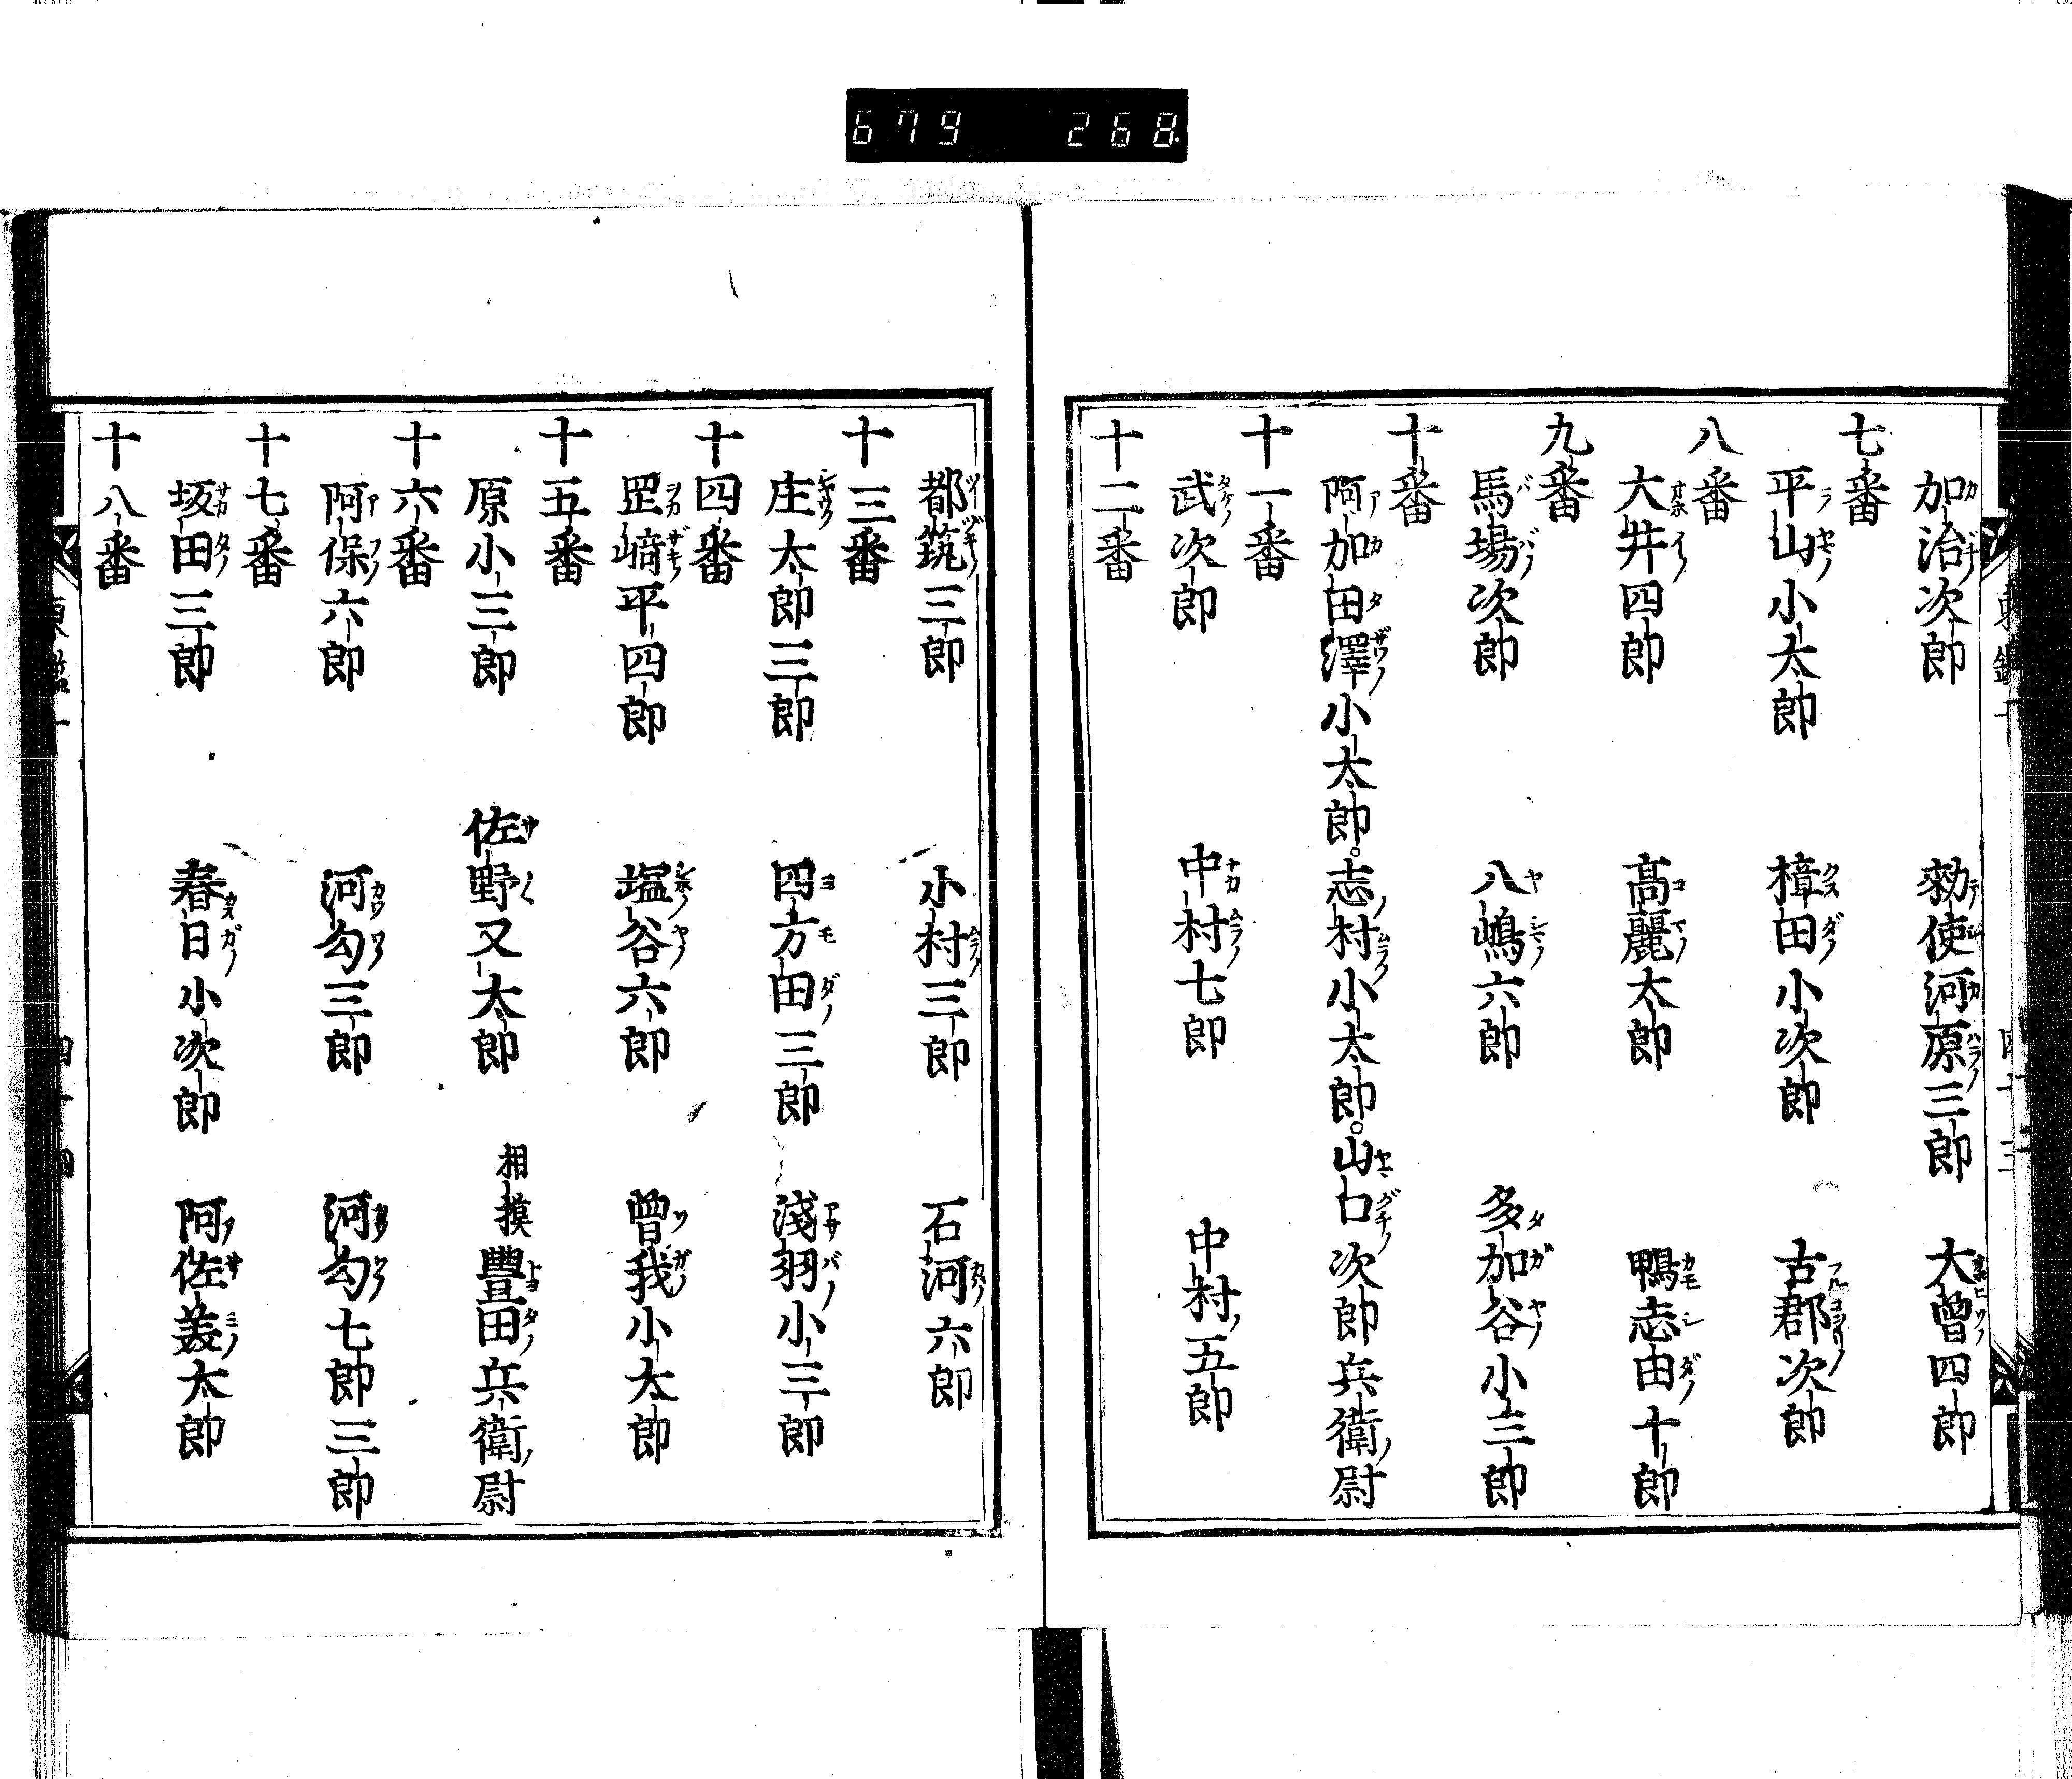 679 268
加治次郎 勅使河原三郎 大曾四郎
七番
平山小太郎 樟田小次郎 古郡次郎
八番
大井四郎 高麗太郎 鴨志田十郎
九番
馬塲次郎 八嶋六郎 多加谷小三郎
十番
阿加田澤小太郎。志村小太郎。山口次郎兵衛尉
十一番
武次郎 中村七郎 中村五郎
十二番
都筑三郎 小村三郎 石河六郎
十三番
庄太郎三郎 四方田三郎 淺羽小三郎
十四番
罡﨑平四郎 塩谷六郎 曾我小太郎
十五番
原小三郎 佐野又太郎 相摸豐田兵衛尉
十六番
阿保六郎 河勾三郎 河勾七郎三郎
十七番
坂田三郎 春日小次郎 阿佐義太郎
十八番